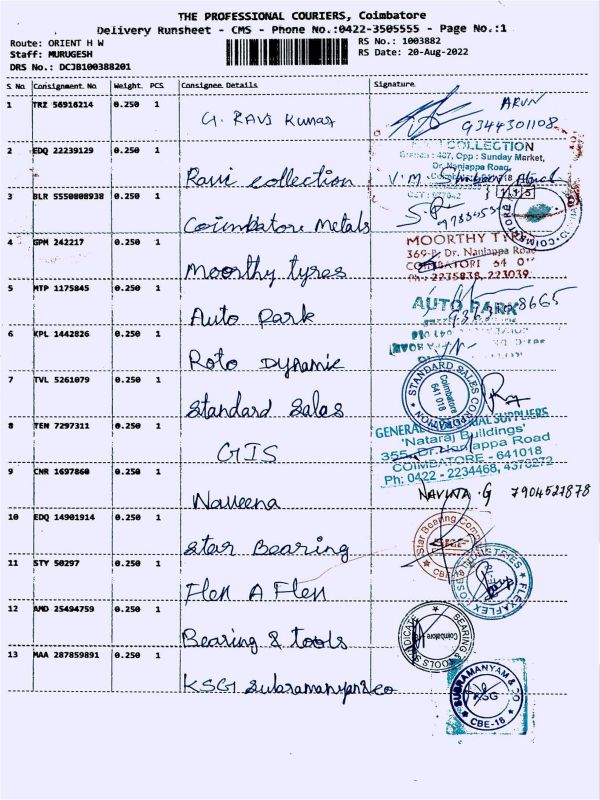 THE PROFESSIONAL COURIERS, Coimbatore
Delivery Runsheet - CMS - Phone No.:0422-3505555 - Page No.:1
Route: ORIENT H W RS No.: 1003882
Staff: MURUGESH RS Date: 20-Aug-2022
DRS No.: DCJB100388201
S. No Consignment. No Weight. PCS Consignee Details Signature
1 TRZ 56916214 0.250 1 G. RAVI Kumar ARUN
9344301108
2 EDQ 22239129 0.250 1 Ravi collection
COLLECTION
Opp : Sunday Market,
Dr. Nanjappa Road,
3 BLR 5550808938 0.250 1 Coimbatore Metals
4 GPM 242217 0.250 1 Moorthy tyres
MOORTHY TY
369- Dr. Nanjappa Road
5 MTP 1175845 0.250 1 Auto Park
AUTO PARK
6 KPL 1442826 0.250 1 Roto Dynamic
7 TVL 5261079 0.250 1 Standard Sales
STANDARD SALES CORPORATION
Coimbatore
641 018
8 TEN 7297311 0.250 1 GIS
GENERAL SUPPLIERS
'Nataraj Buildings'
355, Dr. Nanjappa Road
COIMBATORE - 641018
Ph: 0422 - 2234468, 4378272
9 CNR 1697860 0.250 1 Naveena NAVINA . G 7904527878
10 EDQ 14901914 0.250 1 Star Bearing
Star Bearing
SKF
CBE-18
11 STY 50297 0.250 1 Flen A Flen
FLEXAFLEX INDUSTRIES
12 AMD 25494759 0.250 1 Bearing & tools
BEARING & TOOLS SYNDICATE
Coimbatore
13 MAA 287859891 0.250 1 KSG Subramanyan & co
SUBRAMANYAM & CO
KSG
CBE-18